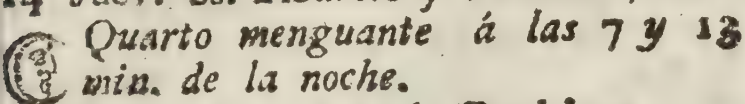 Quarto menguante á las 7 y 13
min. de la noche.